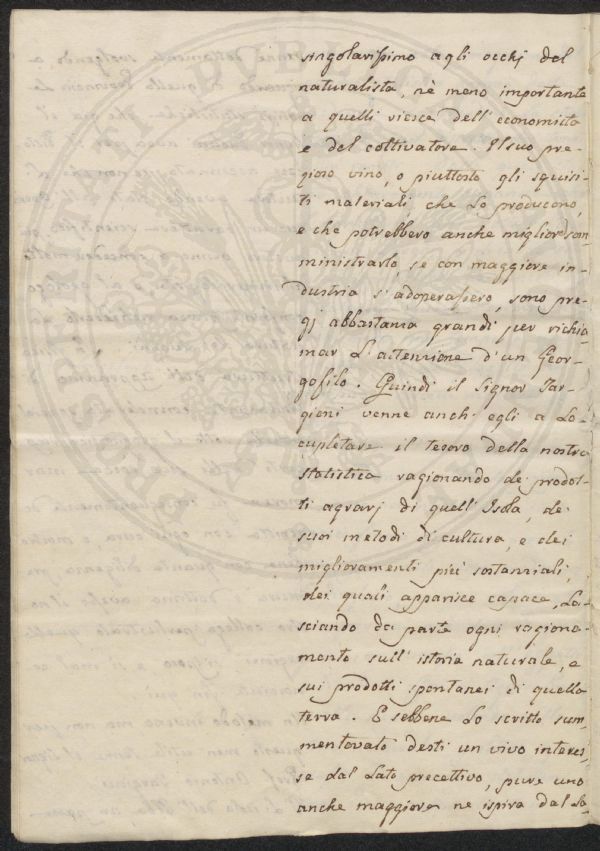 singolarissimo agli occhj del
naturalista, nè meno importante
a quelli riesce dell'economista
e del coltivatore. Il suo pre-
gioso vino, o piuttosto gli squisi-
ti materiali, che lo producono,
e che potrebbero anche migliore som
ministrarlo, se con maggiore in-
dustria s'adoperassero, sono pre-
gj abbastanza grandi per richia
mar l'attenzione d'un Geor-
gofilo. Quindi il Signor Tar-
gioni venne anch'egli a lo-
cupletare il tesoro della nostra
statistica ragionando de' prodot-
ti agrarj di quell'Isola, de'
suoi metodi di cultura, e dei
miglioramenti più sostanziali,
dei quali apparisce capace, la-
sciando da parte ogni raziona-
mento sull'istoria naturale, e
sui prodotti spontanei di quella
terra. E sebbene lo scritto sum
mentovato desti un vivo interes-
se dal lato precettivo, pure uno
anche maggiore ne ispira dal la